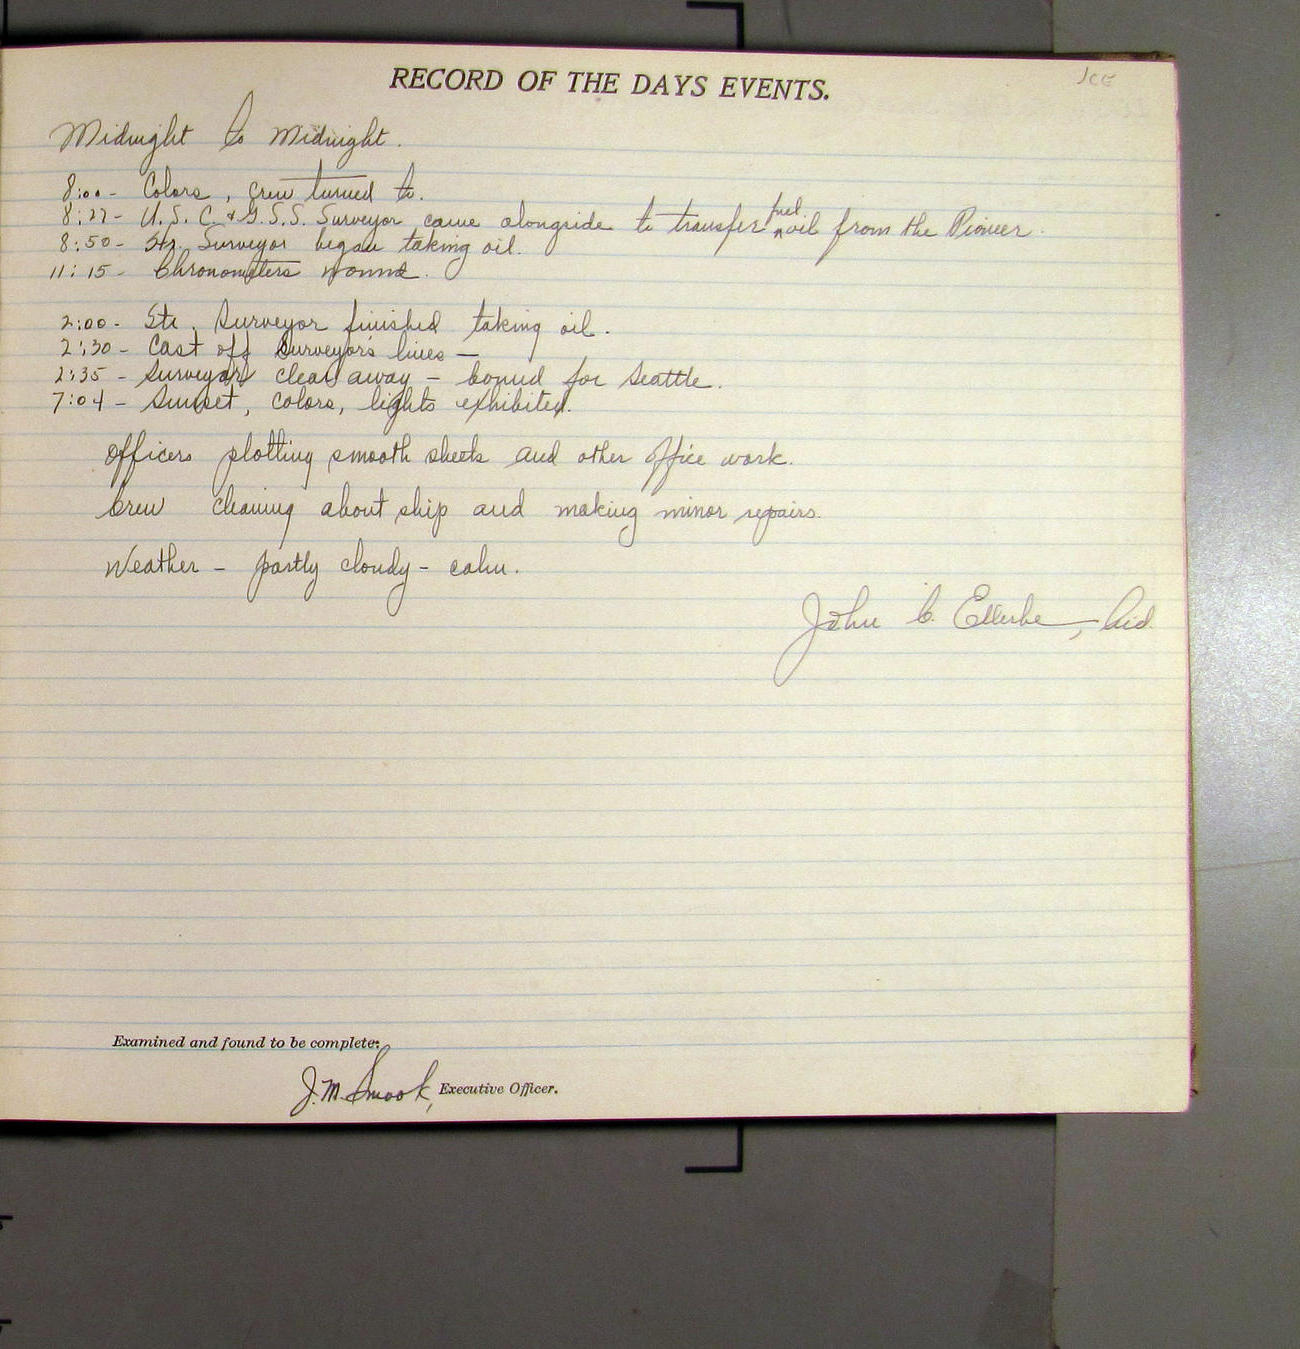 JCE
RECORD OF THE DAYS EVENTS.
Midnight to Midnight.
8:00- Colors, crew turned to.
8:27- U.S.C.&G.S.S. Surveyor came alongside to transfer fuel oil from the Pioneer.
8:50- Str. Surveyor began taking oil.
11:15- Chronometers wound.
2:00- Str. Surveyor finished taking oil.
2:30- Cast off Surveyor's lines —
2:35- Surveyor clear away - bound for Seattle.
7:04- Sunset, colors, lights exhibited.
Officers plotting smooth sheets and other office work.
Crew cleaning about ship and making minor repairs.
Weather - partly cloudy - calm.
John C. Ellerbe, Aid.
Examined and found to be complete:
J.M. Smook, Executive Officer.